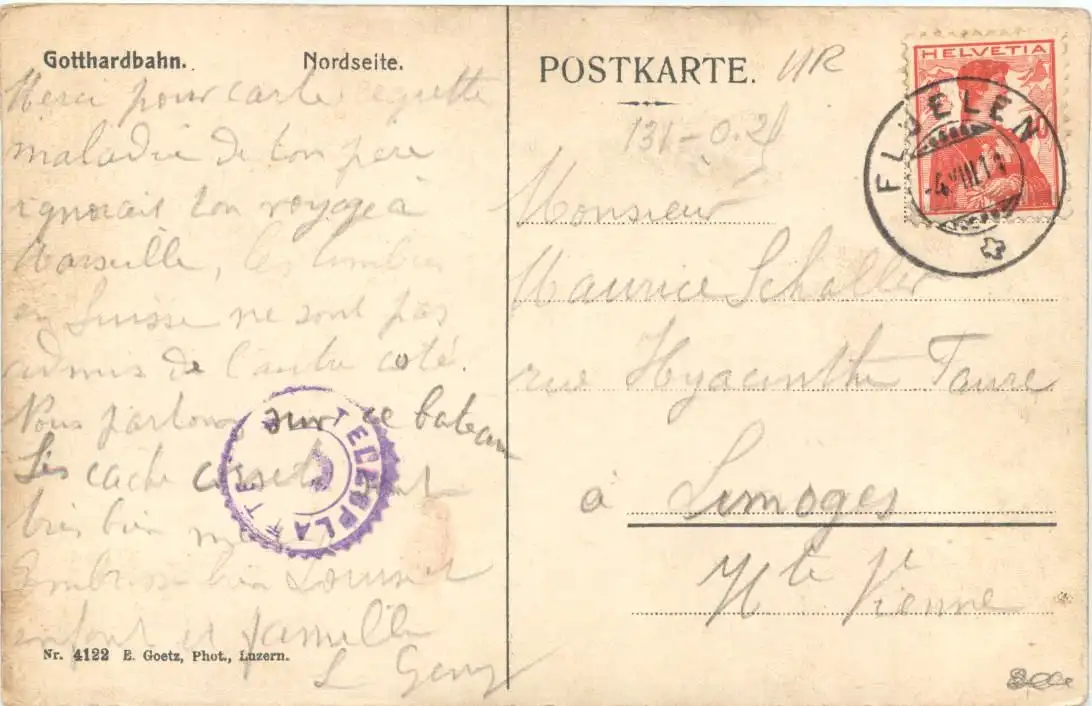 Gotthardbahn. Nordseite.
Merci pour carte regrette
maladie de ton père
ignorait ton voyage à
Marseille, les timbres
en Suisse ne sont pas
admis de l'autre coté.
Nous partons sur ce bateau
Les cache
bien bien
Embrasse bien
enfant et famille
L
Nr. 4122 E. Goetz, Phot., Luzern.
TELLSPLATTE
POSTKARTE. UR
131-0.21
Monsieur
Maurice Schaller
rue Hyacinthe Faure
à Limoges
Hte Vienne
HELVETIA
10
FLUELEN
-4.VIII.1